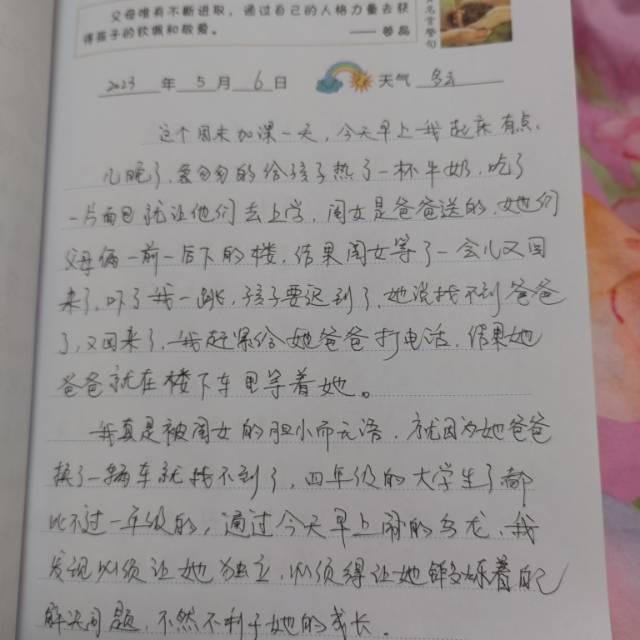 父母唯有不断进取，通过自己的人格力量去获
得孩子的钦佩和敬爱。 ——卷高
2023 年 5 月 6 日 天气 多云
这个周末加课一天，今天早上我起床有点
儿晚了，要匆匆的给孩子热了一杯牛奶，吃了
一片面包就让他们去上学，闺女是爸爸送的，她们
父母俩一前一后下的楼，结果闺女等了一会儿又回
来了，吓了我一跳，孩子要迟到了，她说找不到爸爸
了，又回来了，我赶紧给她爸爸打电话，结果她
爸爸就在楼下车里等着她。
我真是被闺女的胆小而无语，就因为她爸爸
换了一辆车就找不到了，四年级的大学生了都
比不过一年级的，通过今天早上闹的乌龙，我
发现必须让她独立，必须得让她锻炼着自己
解决问题，不然不利于她的成长。